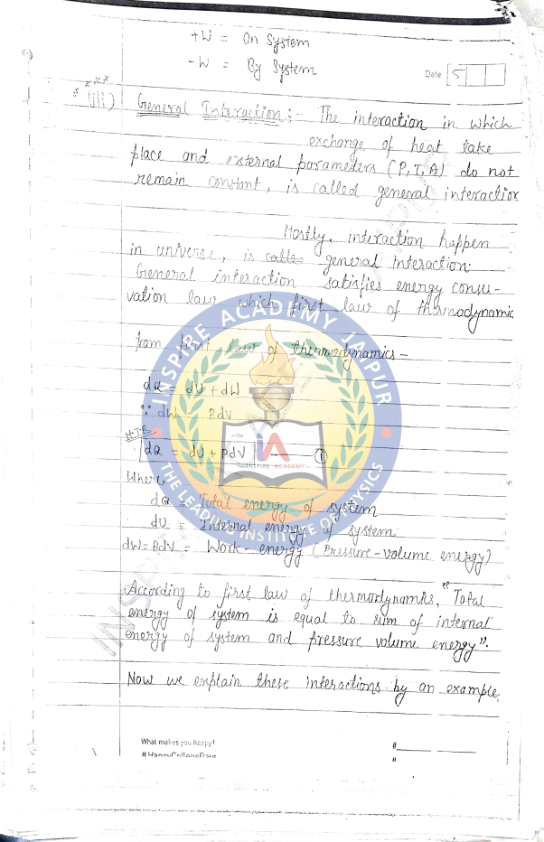 +W = On System
-W = By System
Date 5
(iii) General Interaction:- The interaction in which
exchange of heat take
place and external parameters (P, T, A) do not
remain constant, is called general interaction
Mostly, interaction happen
in universe, is calle general Interaction.
General interaction satisfies energy consu-
vation law which first law of thermodynamic
from first law of thermodynamics -
dQ = dU + dW
∵ dW = PdV
dQ = dU + PdV - ①
Where
dQ = Total energy of system
dU = Internal energy of system.
dW = PdV = Work energy (Pressure-volume energy)
According to first law of thermodynamics, "Total
energy of system is equal to sum of internal
energy of system and pressure volume energy".
Now we explain these interactions by an example.
What makes you happy?
#
#
INSPIRE ACADEMY JAIPUR
INSPIRE ACADEMY
THE LEADING INSTITUTE OF PHYSICS